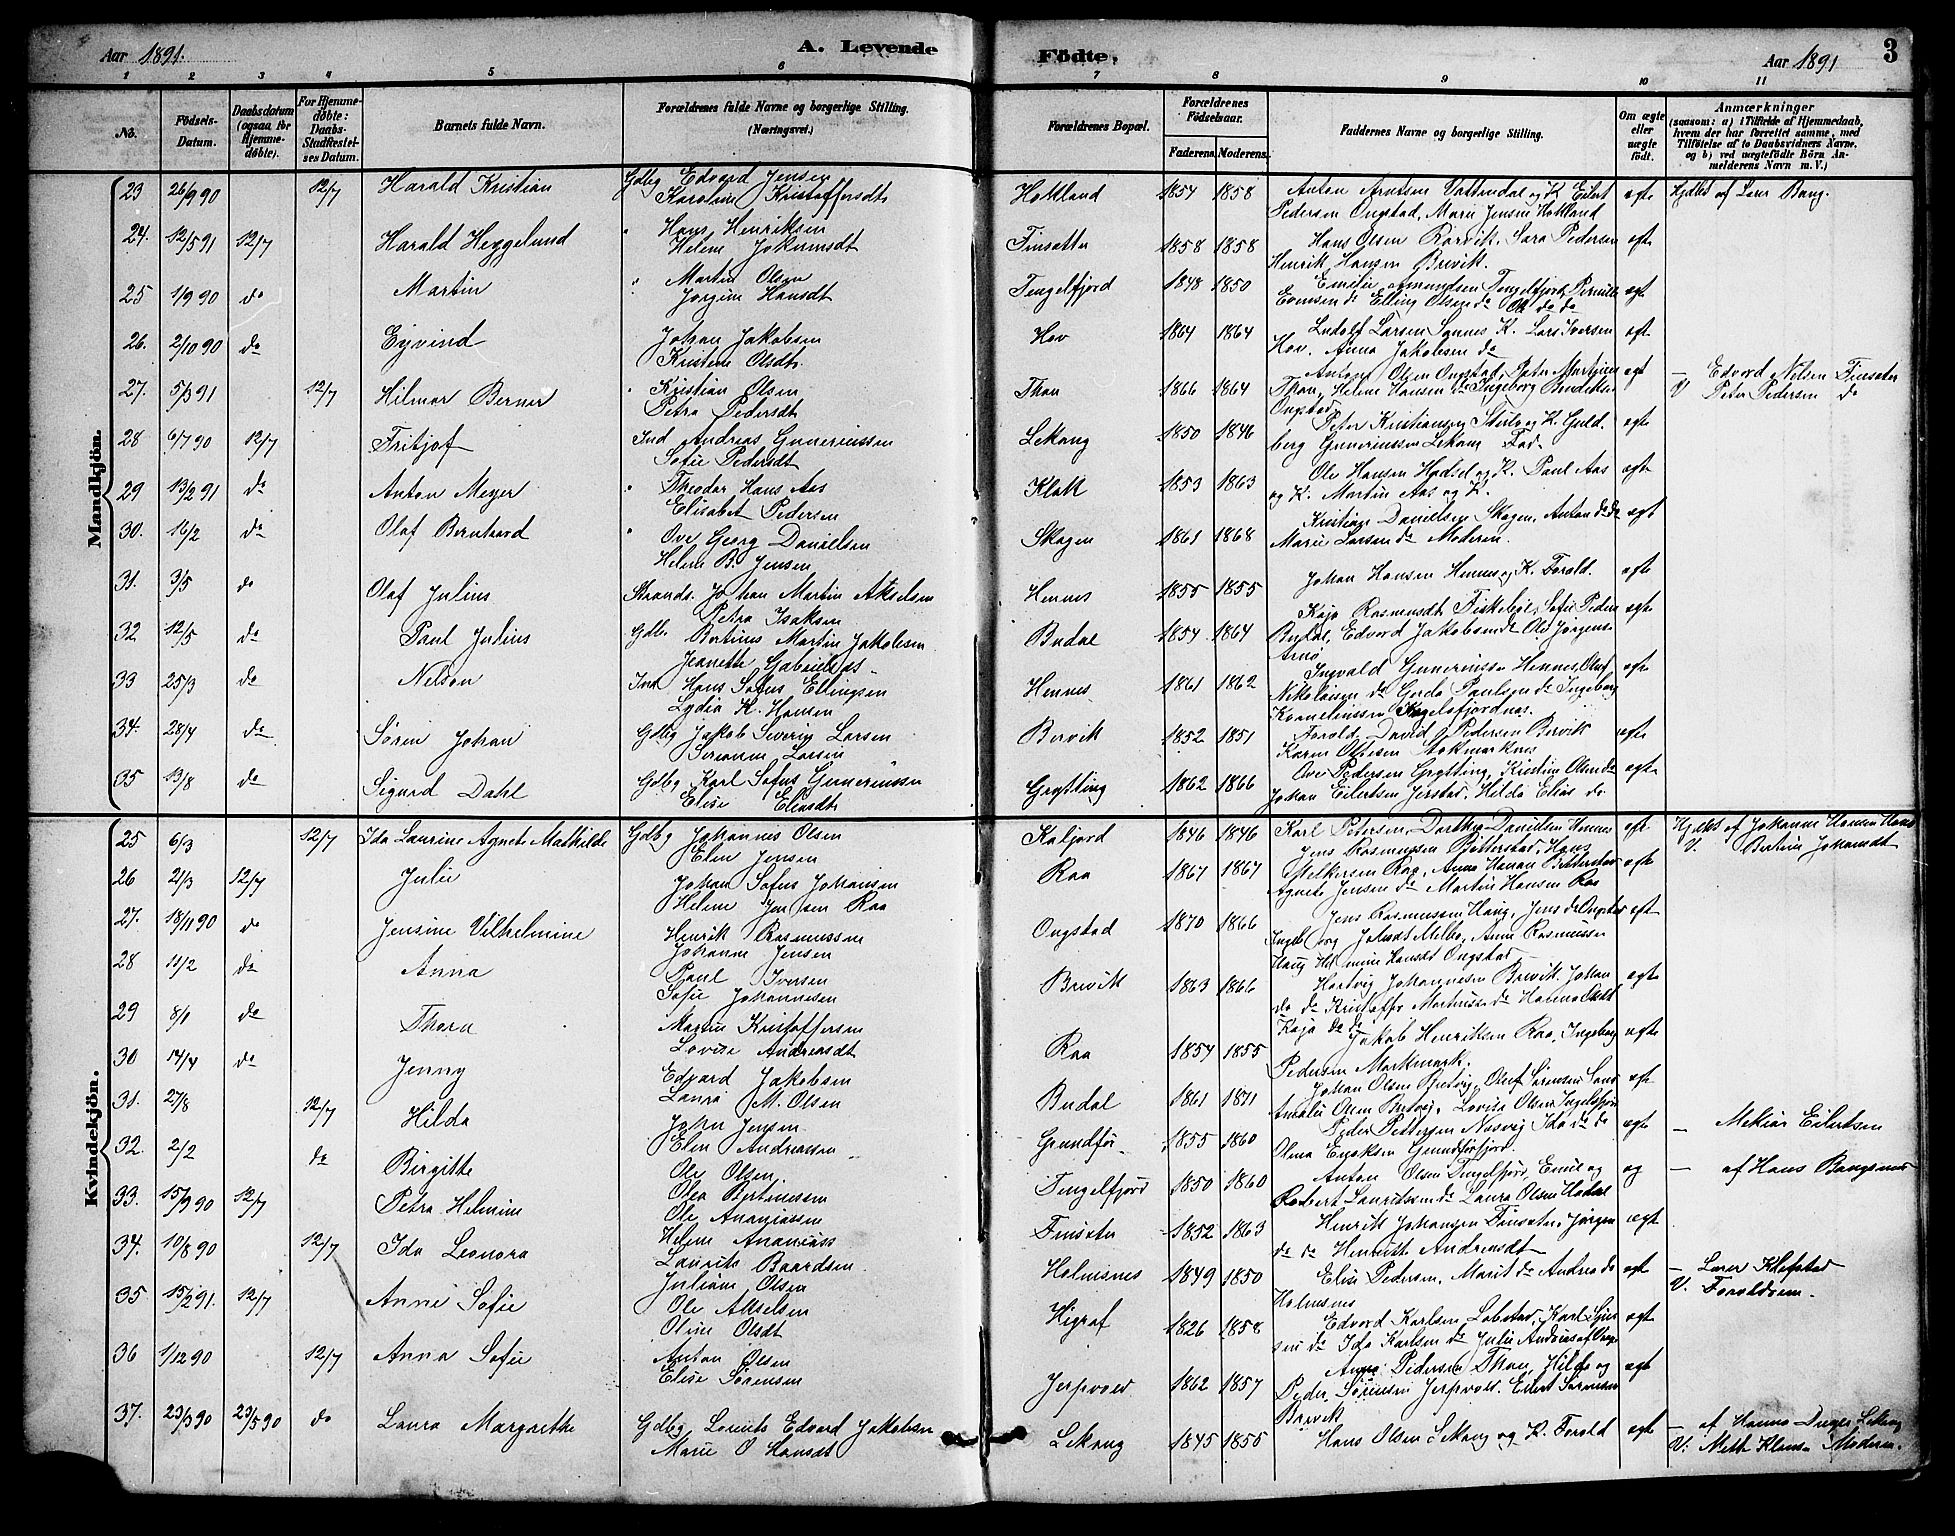 Aar 1891. A. Levende Födte, Aar 1891 3
1 2 3 4 5 6 7 8 9 10 11
No. Födsels-Datum. Daabsdatum (ogsaa for Hjemmedöbte). For Hjemmedöbte: Daabs-Stadfæstelses Datum. Barnets fulde Navn. Forældrenes fulde Navne og borgerlige Stilling. (Næringsvei.) Forældrenes Bopæl. Forældrenes Födselsaar. Faderens. Moderens. Faddernes Navne og borgerlige Stilling. Om ægte eller uægte födt. Anmærkninger (saasom: a) i Tilfælde af Hjemmedaab, hvem der har forrettet samme, med Tilföielse af to Daabsvidners Navne, og b) ved uægtefödte Börn Anmelderens Navn m. V.)
Mandkjön.
23 26/9 90 12/7 Harald Kristian Gdbg Edvard Jensen
Karoline Kristoffersdt Hokland 1854 1858 Anton Arntsen Vattendal og K. Eilert
Pedersen Ongstad, Marie Jensen Hokland ægte Hjdbt af Lærer Bang.
24. 12/5 91 12/7 Harald Heggelund " Hans Henriksen
Helene Johannsdt Finsæter 1858 1858 Hans Olsen Rørvik, Sara Pedersen
Henrik Hansen Brevik. ægte
25 1/9 90 do Martin " Martin Olsen
Jørgine Hansdt Tengelfjord 1848 1850 Emilie Amundsen Tengelfjord, Pernille
Evensen do Elling Olsen do ægte
26. 2/10 90 do Eyvind Johan Jakobsen
Kristine Olsdt. Hov 1864 1864 Ludolf Larsen Sannes K. Lars Iversen
Hov. Anna Jakobsen do ægte
27. 5/3 91 12/7 Hilmar Berner " Kristian Olsen
Petra Pedersdt Thon 1866 1864 Antone Olsen Ongstad, Peter Martinsen
Thon, Helene Hansen do Ingeborg Benediktsen
Ongstad ægt — Edvard Nilsen Finsæter
V Peter Pedersen do
28 6/7 90 12/7 Fritjof Ind Andreas Guneriussen
Sofie Pedersdt Lekang 1850 1846 Peter Kristiansen Steilo og K. Guld-
berg Guneriussen Lekang Fad. ægte
29 13/2 91 do Anton Meyer " Theodor Hans Aas
Elisabet Pedersen Klak 1853 1863 Ole Hansen Hadsel og K. Paul Aas
og K. Martin Aas og K. ægte
30. 16/2 do Olaf Bernhard " Ove Georg Danielsen
Helene B. Jensen Skagen 1861 1868 Kristiane Danielsen Skagen, Anton do do
Marie Larsen do Moderen. ægt
31. 3/5 do Olaf Julius Strands. Johan Martin Akselsen
Petra Isaksen Hennes 1855 1855 Johan Hansen Hennes og K. Forald. ægte
32 12/5 do Paul Julius Gdbr. Bertinus Martin Jakobsen
Jeanette Gabrielsdt Budal 1854 1864 Kaja Rasmusdt Fiskebøl, Sofie Peder
Budal, Edvard Jakobsen do Ole Jørgens
Arnø ægte
33 25/3 do Nelson Ind Hans Sofus Ellingsen
Lydia K. Hansen Hennes 1861 1862 Ingvald Gunerius Hennes, Oluf
Nikolaisen do Gerda Paulsen do Ingeborg
Korneliussen ægte
34. 28/4 do Søren Johan Gdbg Jakob Severin Larsen
Serianna Larsen Børvik 1852 1851 Forald David Pedersen Børvik
Karen Ottesen Stokmarknes ægte
35 13/8 do Sigurd Dahl Gdbg Karl Sofus Gunneriussen
Elise Eliasdt Grytting 1862 1866 Ove Pedersen Grytting, Kristine Olsen do
Johan Eilertsen Jerstad, Hilda Elias do ægte
Kvindekjön.
25 6/3 12/7 Ida Laurine Agnete Mathilde Gdbg Johannes Olsen
Elen Jensen Kaljord 1846 1846 Karl Petersen, Dorthea Danielsen Hennes
Jens Rasmussen Bitterstad, Hans ægte Hjdbt af Johanne Hansen
V. Bertine Johansdt
26 21/3 12/7 Julie Johan Sofus Johansen
Helene Jensen Raa Raa 1867 1867 Raa, Anna Hanan Bitterstad
Agnete Jensen do Martin Hansen Raa ægte
27. 18/11 90 do Jensine Vilhelmine Henrik Rasmussen
Johanne Jensen Ongstad 1870 1866 Jens Rasmussen Haug, Jens do Ongstad
Ingeborg Melbo, Anne Rasmussen
Haug Hansdt Ongstad ægt
28 11/2 do Anna Paul Iversen
Sofie Johannesen Brevik 1863 1866 Hartvig Johannesen Brevik Johan
do do Kristoffer do Hanna Olsdt
Kaja do do ægte
29 8/1 do Thora Martin Kristoffersen
Lovise Andreasdt Raa 1854 1855 Jakob Henriksen Raa, Ingeborg
Pedersen Markmark. ægte
30 14/4 do Jenny Edvard Jakobsen
Laura M. Olsen Budal 1861 1871 Johan Olsen Oluf Sørensen
Amalie Olsen Lovise Olsen ægt
31. 27/8 12/7 Hilda John Jensen
Elen Andreassen Grundfør 1855 1860 Peder Pettersen Nusvig Ida do do
Olma Eriksen Grundførfjord. ægte — Mekiar Eilertsen
32. 2/2 do Birgitte Ole Olsen
Olea Bertinussen Tengelfjord 1850 1860 Anton Olsen Tengelfjord, Emil og
Robert Lauritsen do Laura Olsen Hadsel og — af Hans Bangsnes
33. 15/9 90 12/7 Petra Helmine Ole Ananiassen
Helene Ananiass Finsæter 1852 1863 Henrik Johansen Finsæter, Jørgen
do do Henriette Andreasdt ægt
34. 10/8 90 12/7 Ida Leonora Laurits Baardsen
Juliane Olsen Holmsnes 1849 1850 Elise Pedersen, Marit do Andrea do
Holmsnes ægt — Lærer Klefstad
V. Foraldrene.
35 15/2 91. 12/7 Anne Sofie Ole Akselsen
Oline Olsdt Higraf 1826 1858 Edvard Karlsen Lobstad, Karl
do Ida Karlsen do Julie ægt
36 1/12 90 12/7 Anna Sofie Anton Olsen
Elise Sørensen Jerpvold 1862 1857 Anna Pedersen Thon, Hilda og
Peder Sørensen Jerpvold. Eilert Sørensen
Brevik ægt
37. 23/3 90 23/5 90 do Laura Margrethe Gdbg Lorents Edvard Jakobsen
Marie O Hansdt Lekang 1845 1855 Hans Olsen Lekang og K. Forald ægt — af Hanna Lekang
V. Mette Moderen.